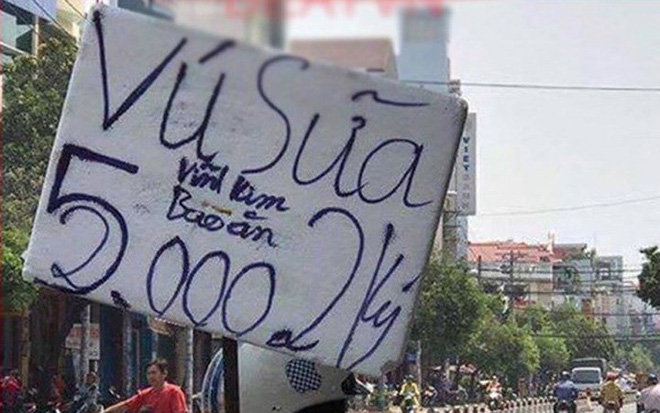 Vú Sữa
Vĩnh Kim
Bao ăn
5.000đ 2 ký
VIET